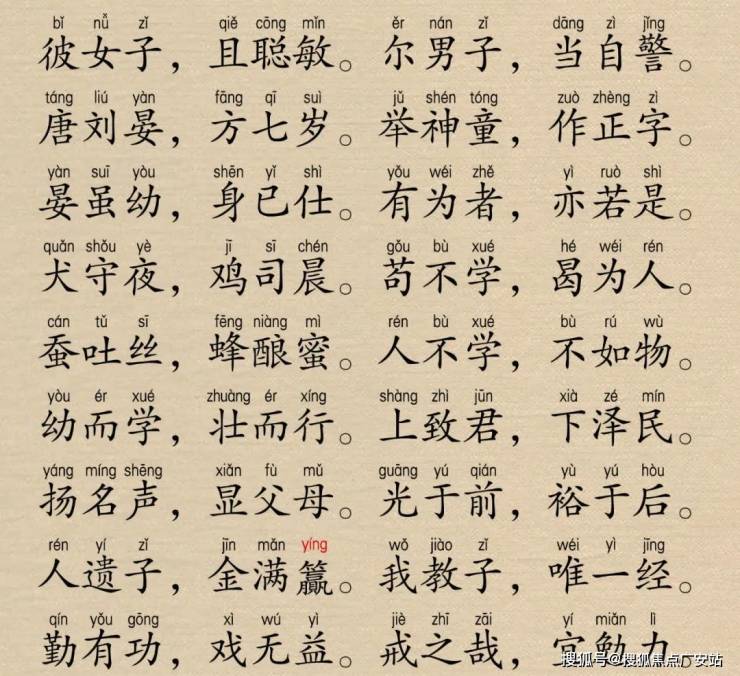 bǐ nǚ zǐ qiě cōng mǐn ěr nán zǐ dāng zì jǐng
彼女子，且聪敏。尔男子，当自警。
táng liú yàn fāng qī suì jǔ shén tóng zuò zhèng zì
唐刘晏，方七岁。举神童，作正字。
yàn suī yòu shēn yǐ shì yǒu wéi zhě yì ruò shì
晏虽幼，身已仕。有为者，亦若是。
quǎn shǒu yè jī sī chén gǒu bù xué hé wéi rén
犬守夜，鸡司晨。苟不学，曷为人。
cán tǔ sī fēng niàng mì rén bù xué bù rú wù
蚕吐丝，蜂酿蜜。人不学，不如物。
yòu ér xué zhuàng ér xíng shàng zhì jūn xià zé mín
幼而学，壮而行。上致君，下泽民。
yáng míng shēng xiǎn fù mǔ guāng yú qián yù yú hòu
扬名声，显父母。光于前，裕于后。
rén yí zǐ jīn mǎn yíng wǒ jiào zǐ wéi yì jīng
人遗子，金满籯。我教子，唯一经。
qín yǒu gōng xì wú yì jiè zhī zāi yí miǎn lì
勤有功，戏无益。戒之哉，宜勉力。
搜狐号@搜狐焦点广安站